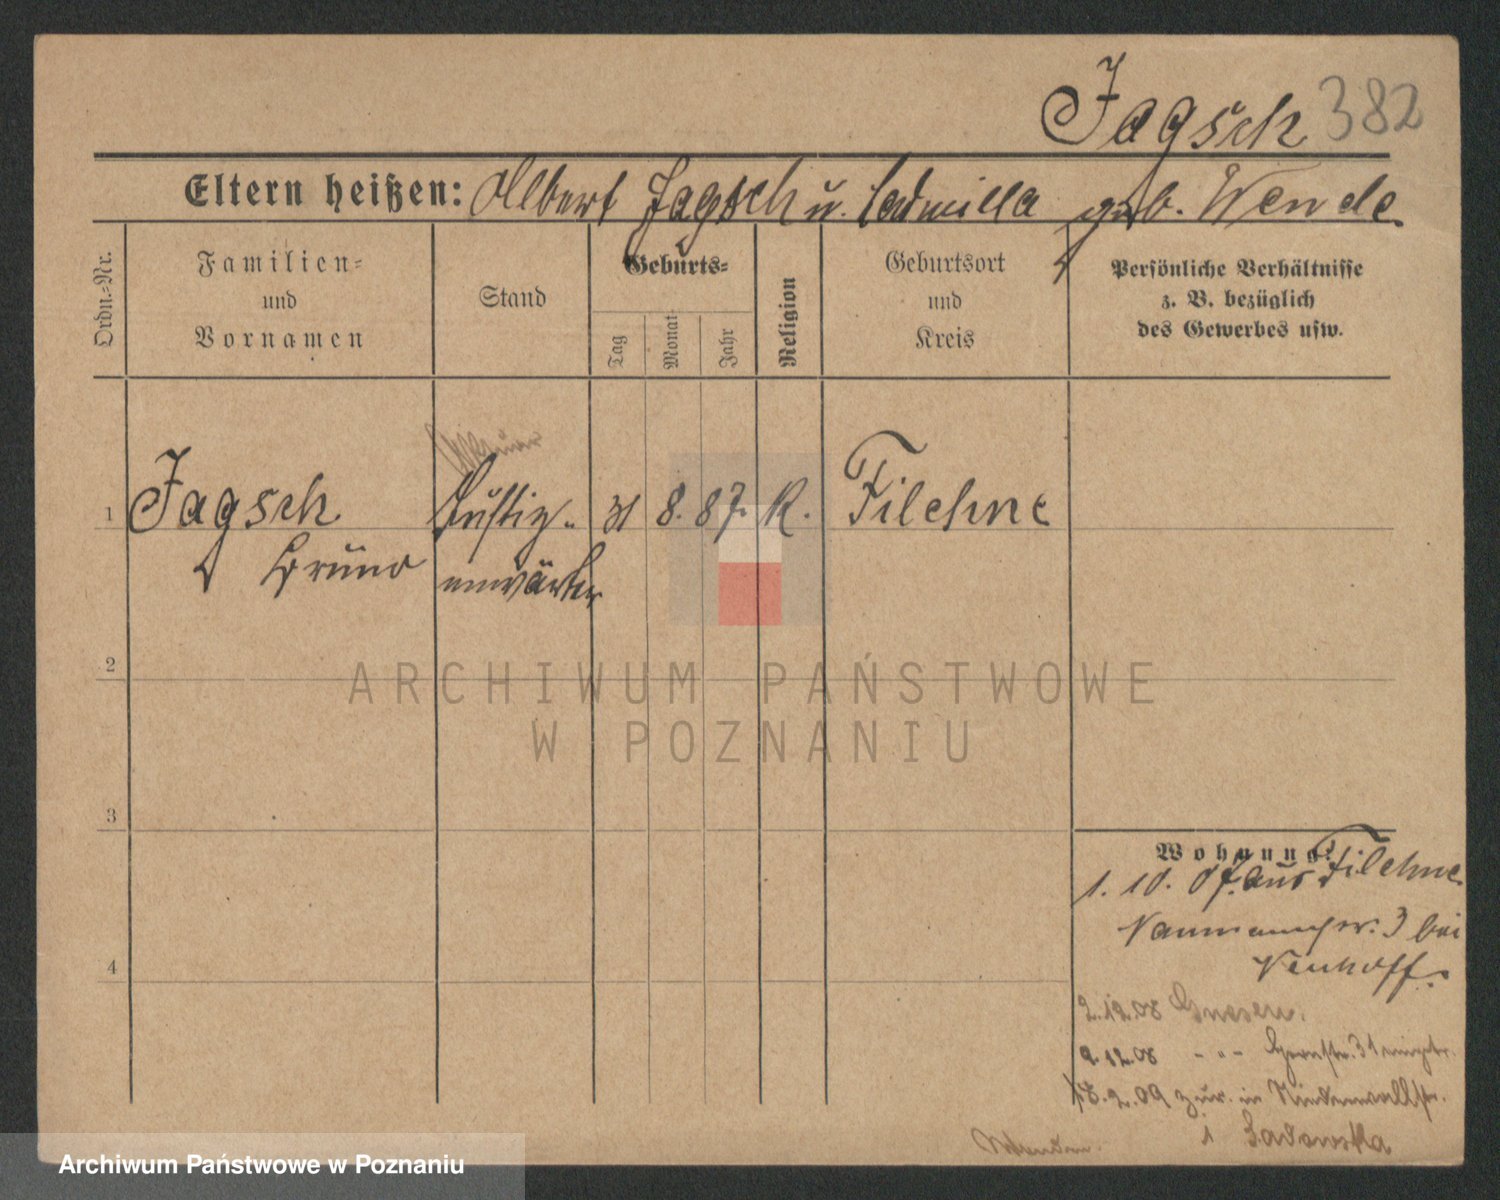 Jagsch 382
Eltern heißen: Albert Jagsch u. Ludmilla geb. Wende
Ordn.=Nr.
Familien=
und
Vornamen
Stand
Geburts=
Tag
Monat
Jahr
Religion
Geburtsort
und
Kreis
Persönliche Verhältnisse
z. B. bezüglich
des Gewerbes usw.
1 Jagsch Justiz- 31 8. 87. K. Filehne
Bruno anwärter
2
3
4
Wohnung:
1. 10. 07. aus Filehne
Naumannstr. 3 bei
Neuhoff.
2.12.08 Gnesen.
9.12.08 - " - 31
18.2.09 zur. in Niederwallstr.
1 Sadowska
ARCHIWUM PAŃSTWOWE
W POZNANIU
Archiwum Państwowe w Poznaniu